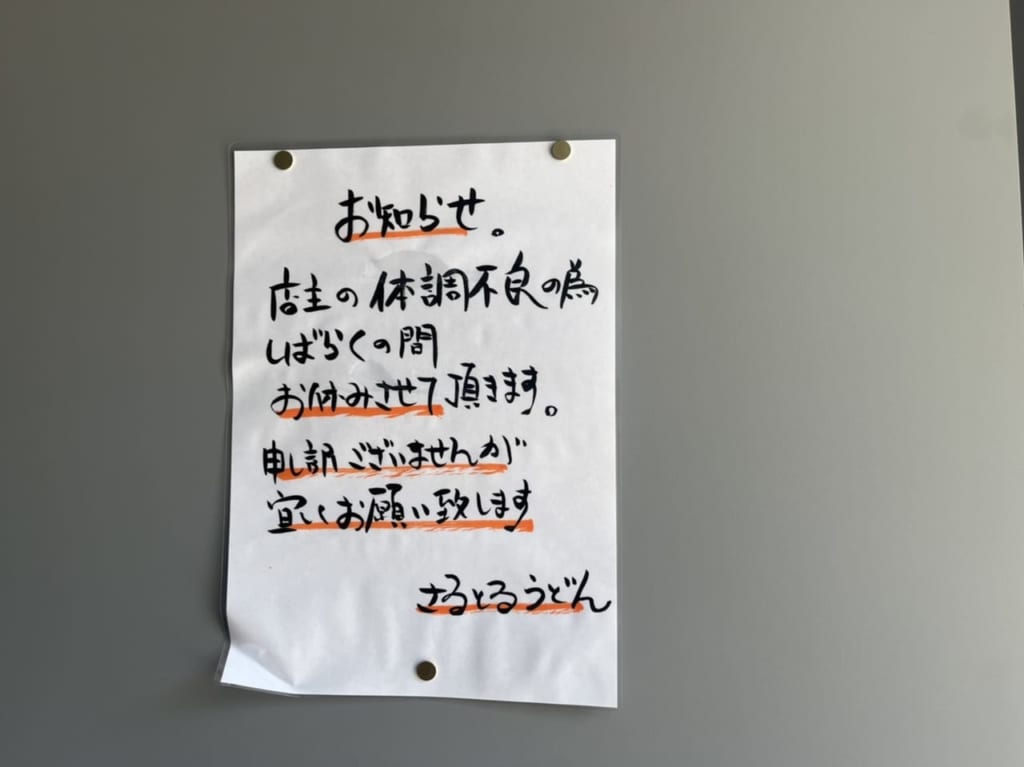 お知らせ。
店主の体調不良の為
しばらくの間
お休みさせて頂きます。
申し訳ございませんが
宜しくお願い致します
さるとるうどん